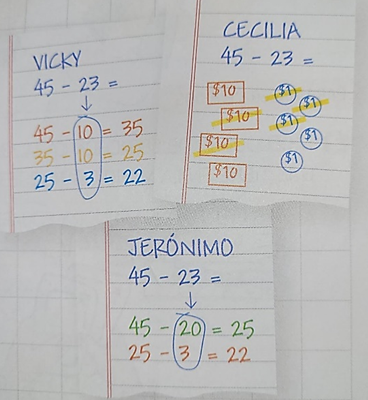 VICKY
45 - 23 =
45 - 10 = 35
35 - 10 = 25
25 - 3 = 22
CECILIA
45 - 23 =
$10 $1
$10 $1
$1
$10 $1
$10 $1
JERÓNIMO
45 - 23 =
45 - 20 = 25
25 - 3 = 22